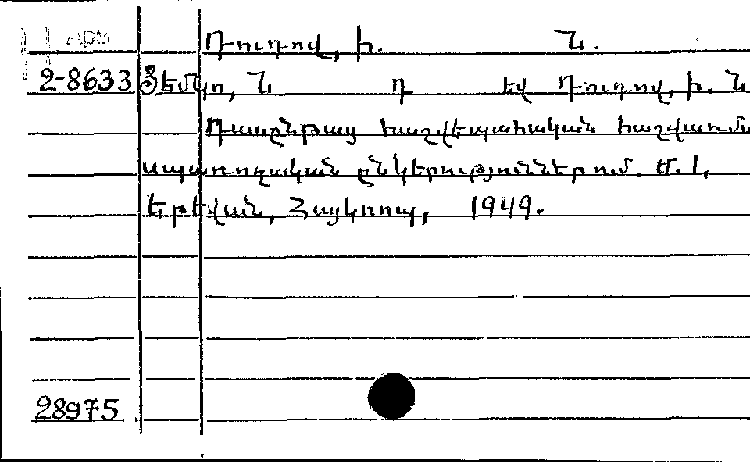 Арм Դուդով, Ի. Ն.
2-8633 Ֆեմկո, Ն Դ եվ Դուդով, Ի. Ն
Դասընթաց հաշվեպահական հաշվառմա
սպառողական ընկերություններում. Մ. 1,
Երեվան, Հայկոոպ, 1949.
28975